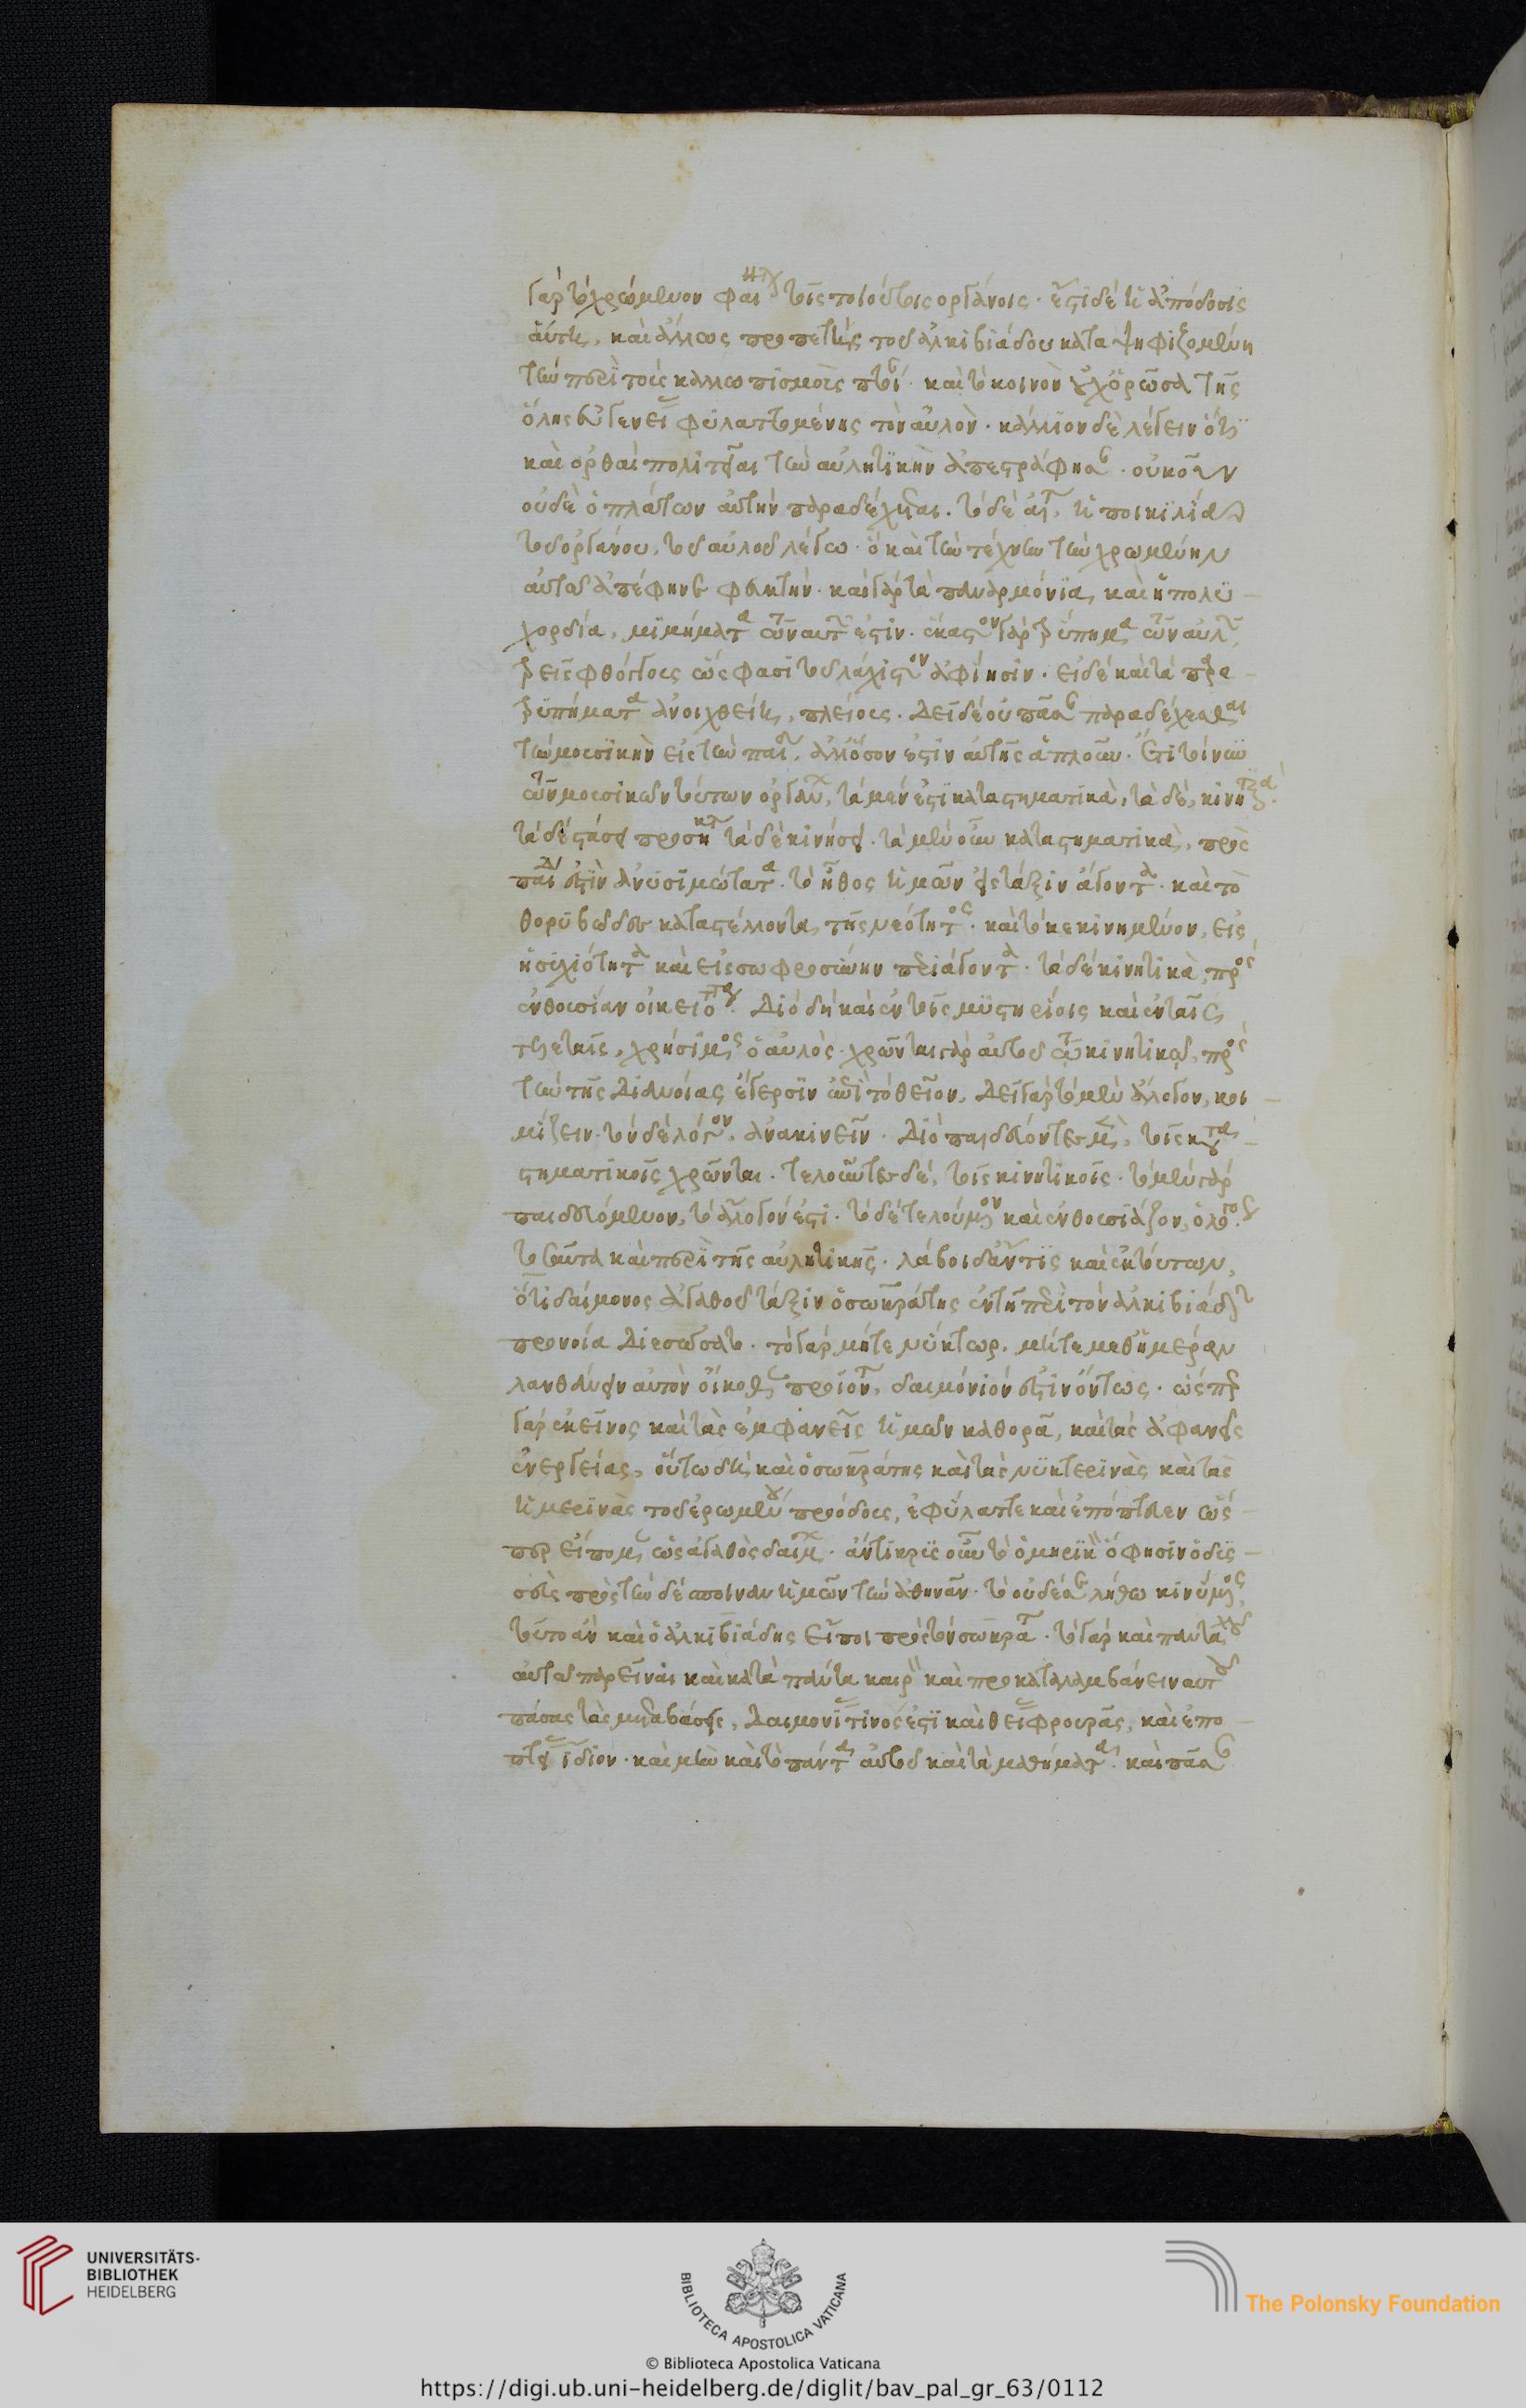 γὰρ τὸ χρώμενον φαί τοῖς τοιούτοις οργάνοις. ἔστι δὲ ἡ ἀπόδοσις
αὕτη, καὶ ἄλλως προπετὴς τοῦ ἀλκιβιάδου καταψηφιζομένη
τὴν περὶ τοὺς καλλωπισμοὺς καὶ τὸ κοινὸν τῆς
ὅλης φυλαττομένης τὸν αὐλὸν. κάλλιον δὲ λέγειν ὅτι
καὶ ορθαὶ πολιτεῖαι τὴν αὐλητικὴν ἀπεστράφησαν. οὐκοῦν
οὐδὲ ὁ πλάτων αὐτὴν παραδέχεται. τὸ δὲ αἴτιον, ἡ ποικιλία
τοῦ οργάνου, τοῦ αὐλοῦ λέγω. ὃ καὶ τὴν τέχνην τὴν χρωμένην
αὐτῶ ἀπέφηνε φευκτήν. καὶ γὰρ τὰ παναρμόνια, καὶ ἡ πολυ
χορδία, μιμήματα τῶν αὐλῶν ἐστίν. ἕκαστον γὰρ τρύπημα τῶν αὐλῶν
τρεῖς φθόγγους ὥς φασι τοὐλάχιστον ἀφίησιν. εἰ δὲ καὶ τὰ παρα
τρυπήματα ἀνοιχθείη, πλείους. Δεῖ δὲ οὐ πᾶσαν παραδέχεσθαι
τὴν μουσικὴν εἰς τὴν παιδείαν, ἀλλ' ὅσον ἐστὶν αὐτῆς ἁπλοῦν. Ἔτι τοίνυν
τῶν μουσικῶν τούτων οργάνων, τὰ μέν ἐστι καταστηματικὰ, τὰ δὲ, κινητικά.
τὰ δὲ στάσει προσήκοντα τὰ δὲ κινήσει. τὰ μὲν οὖν καταστηματικὰ, πρὸς
παιδείαν ἐστὶν ὀνυσιμώτατα. τὸ ἦθος ἡμῶν εἰς τάξιν ἄγοντα. καὶ τὸ
θορυβῶδες καταστέλλοντα, τῆς νεότητος. καὶ τὸ κεκινημένον, εἰς
ἡσυχιότητα καὶ εἰς σωφροσύνην περιάγοντα. τὰ δὲ κινητικὰ, πρὸς
ἐνθουσίαν οἰκειότατα. Διὸ δὴ καὶ ἐν τοῖς μυστηρίοις καὶ ἐν ταῖς
τελεταῖς, χρήσιμος ὁ αὐλὸς. χρῶνται γὰρ αὐτοῦ τῶ κινητικῶ, πρὸς
τὴν τῆς Διανοίας ἔγερσιν ἐπὶ τὸ θεῖον. Δεῖ γὰρ τὸ μὲν ἄλογον, κοι
μίζειν. τὸν δὲ λόγον, ἀνακινεῖν. Διὸ παιδεύοντες μὲν, τοῖς κατα
στηματικοῖς χρῶνται. τελοῦντες δὲ, τοῖς κινητικοῖς. τὸ μὲν γὰρ
παιδευόμενον, τὸ ἄλογόν ἐστι. τὸ δὲ τελούμενον καὶ ἐνθουσιάζον, ὁ λόγος.
ταῦτα καὶ περὶ τῆς αὐλητικῆς. λάβοι δ' ἄν τις καὶ ἐκ τούτων,
ὅτι δαίμονος ἀγαθοῦ τάξιν ὁ σωκράτης ἐν τῆ περὶ τὸν ἀλκιβιάδην
προνοία Διεσώσατο. τὸ γὰρ μήτε νύκτωρ, μήτε μεθημέραν
λανθάνειν αυτὸν οἴκοθεν προϊόντα, δαιμόνιόν ἐστιν ὄντως. ὥσπερ
γὰρ ἐκεῖνος καὶ τὰς ἐμφανεῖς ἡμῶν καθορᾶ, καὶ τὰς ἀφανεῖς
ἐνεργείας, οὕτω δὴ καὶ ὁ σωκράτης καὶ τὰς νυκτερινὰς καὶ τὰς
ἡμερινὰς τοῦ ἐρωμένου προόδους, ἐφύλαττε καὶ ἐπόπτευεν ὥσ
περ εἴπομεν ὡς ἀγαθὸς δαίμων. ἀντικρὺς οὖν τὸ ὁμηρικὸν ὅ φησιν ὀδυσ
σεὺς πρὸς τὴν δέσποιναν ἡμῶν τὴν ἀθηνᾶν. τὸ οὐδέ σε λήθω κινύμενος,
τοῦτο ἂν καὶ ὁ ἀλκιβιάδης εἴποι πρὸς τὸν σωκράτην. τὸ γὰρ καὶ πανταχοῦ
αὐτῶ παρεῖναι καὶ κατὰ πάντα καιρὸν καὶ προκαταλαμβάνειν αυτοῦ
πάσας τὰς μεταβάσεις, Δαιμονίας τινός ἐστι καὶ θείας φρουρᾶς, καὶ ἐπο
πτείας ἴδιον. καὶ μὴν καὶ τὸ πάντα αὐτοῦ καὶ τὰ μαθήματα καὶ πᾶσαν
UNIVERSITÄTS-
BIBLIOTHEK
HEIDELBERG
BIBLIOTECA APOSTOLICA VATICANA
The Polonsky Foundation
© Biblioteca Apostolica Vaticana
https://digi.ub.uni-heidelberg.de/diglit/bav_pal_gr_63/0112